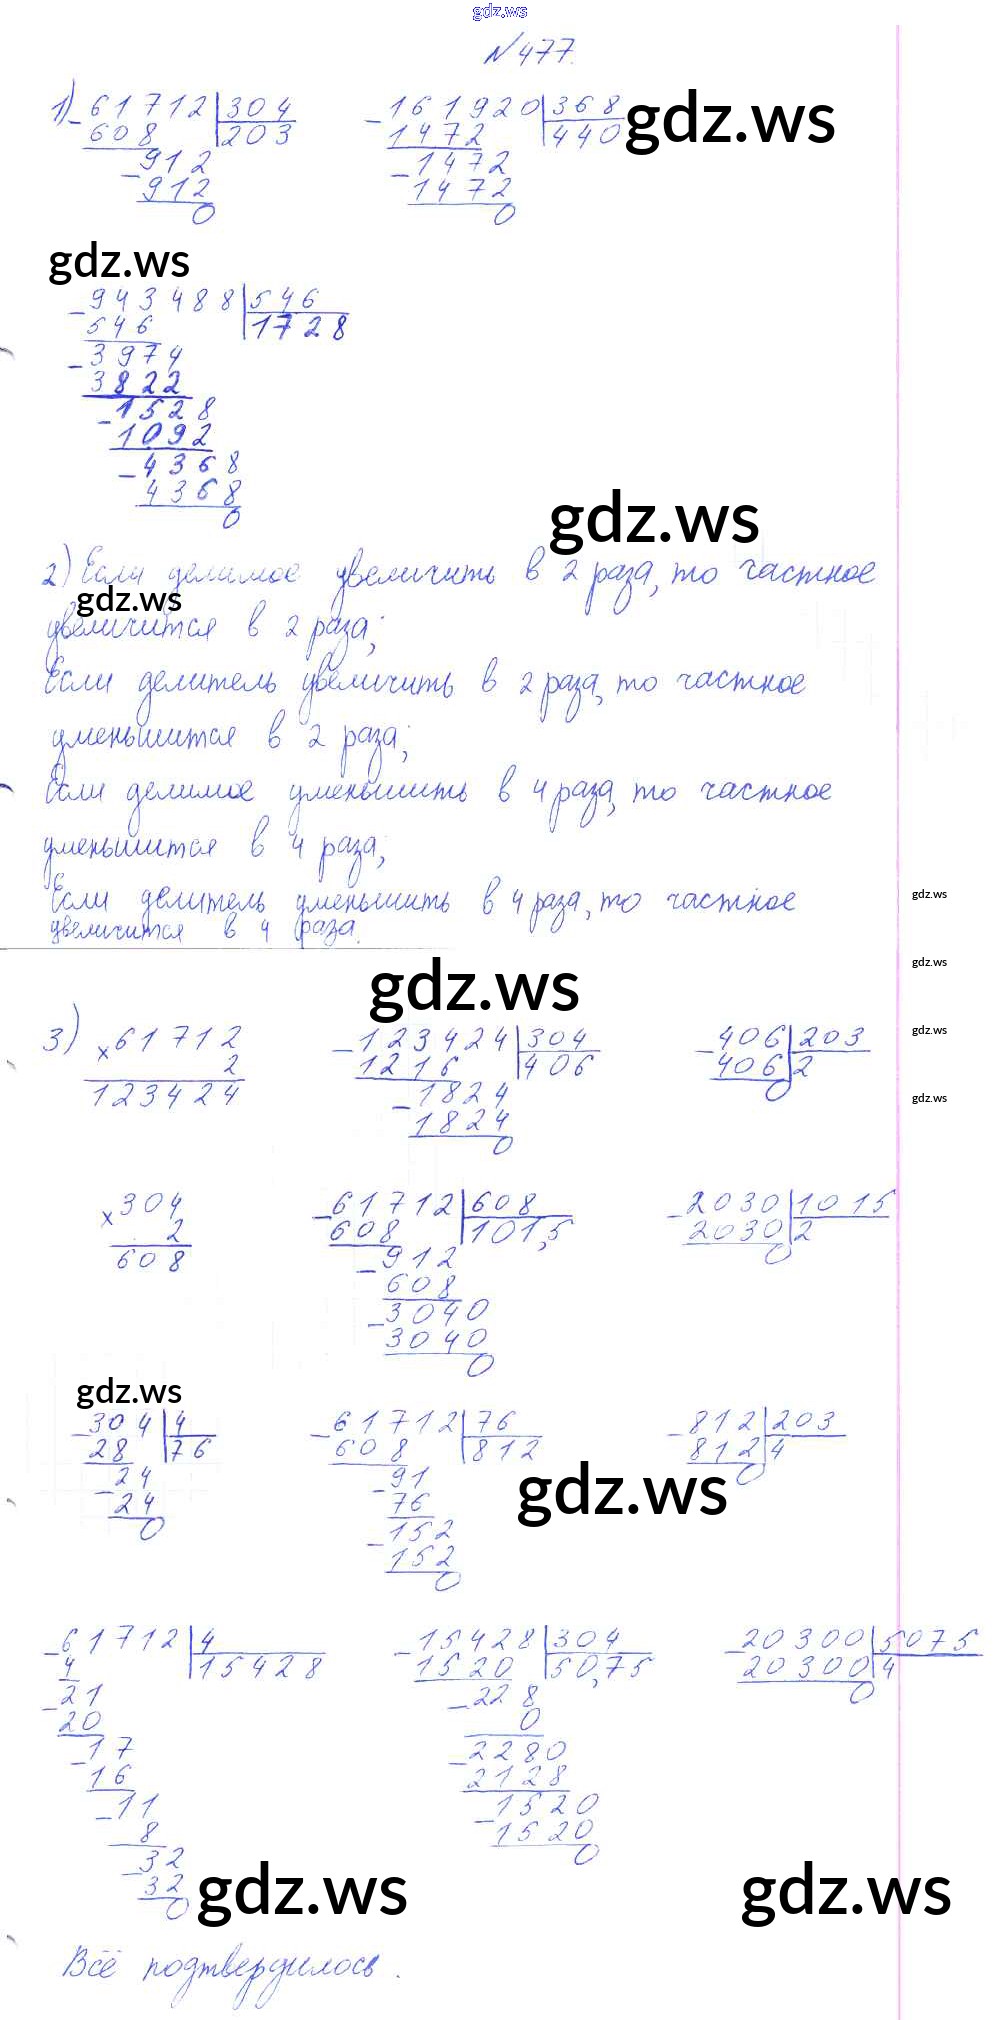 gdz.ws
№477.
1) - 61712 | 304 - 161920 | 368 gdz.ws
608 | 203 1472 | 440
- 912 - 1472
912 1472
0 0
gdz.ws
- 943488 | 546
546 | 1728
- 3974
3822
- 1528
1092
- 4368
4368
0
gdz.ws
2) Если делимое увеличить в 2 раза, то частное
gdz.ws
увеличится в 2 раза;
Если делитель увеличить в 2 раза, то частное
уменьшится в 2 раза;
Если делимое уменьшить в 4 раза, то частное
уменьшится в 4 раза;
Если делитель уменьшить в 4 раза, то частное
gdz.ws
увеличится в 4 раза.
gdz.ws
gdz.ws
3) × 61712 - 123424 | 304 - 406 | 203
gdz.ws
2 1216 | 406 406 | 2
123424 - 1824 0
gdz.ws
1824
0
× 304 - 61712 | 608 - 2030 | 1015
2 608 | 101,5 2030 | 2
608 - 912 0
608
- 3040
3040
0
gdz.ws
- 304 | 4 - 61712 | 76 - 812 | 203
28 | 76 608 | 812 812 | 4
- 24 - 91 0
24 76 gdz.ws
0 - 152
152
0
- 61712 | 4 - 15428 | 304 - 20300 | 5075
4 | 15428 1520 | 50,75 20300 | 4
- 21 - 228 0
20 0
- 17 - 2280
16 2128
- 11 - 1520
8 1520
- 32 0
32 gdz.ws gdz.ws
0
Всё подтвердилось.